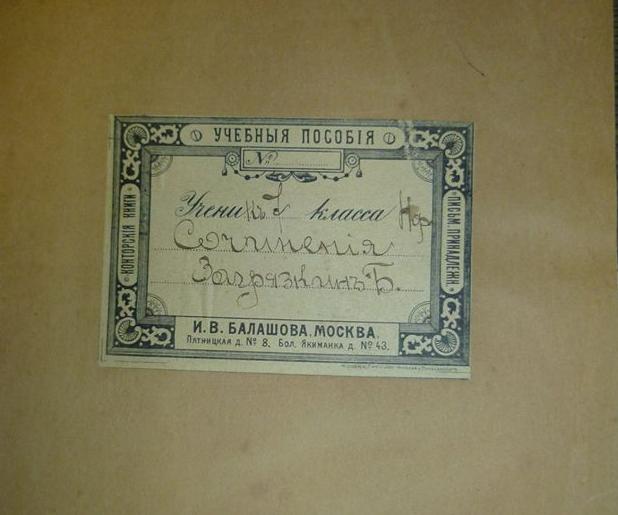 УЧЕБНЫЯ ПОСОБІЯ
№
КОНТОРСКІЯ КНИГИ
ПИСЬМ. ПРИНАДЛЕЖН.
Ученикъ класса
Сочиненія
Загрязкинъ Б.
И. В. БАЛАШОВА, МОСКВА.
ПЯТНИЦКАЯ Д. № 8. БОЛ. ЯКИМАНКА Д. № 43.